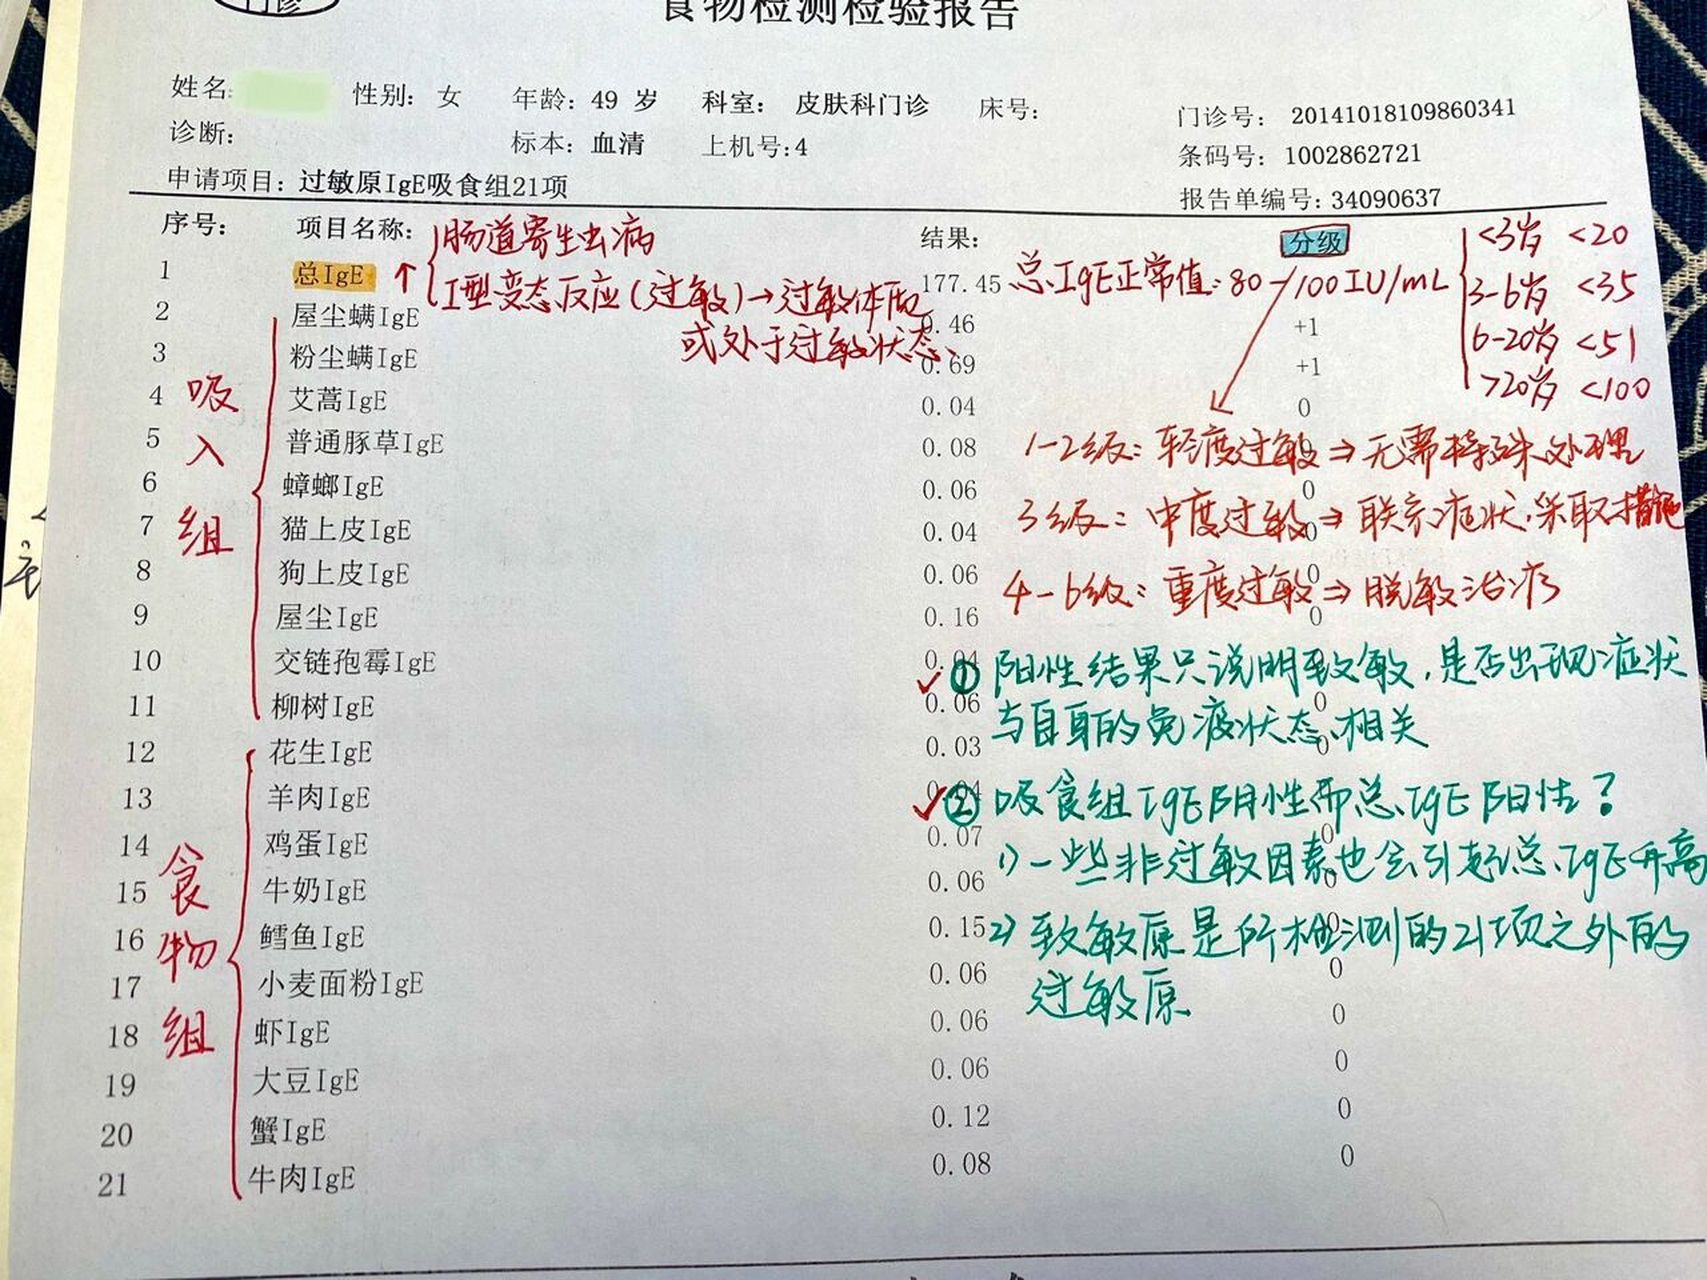 门诊
食物检测检验报告
姓名: 性别: 女 年龄: 49 岁 科室: 皮肤科门诊 床号: 门诊号: 20141018109860341
诊断: 标本: 血清 上机号:4 条码号: 1002862721
申请项目: 过敏原IgE吸食组21项 报告单编号: 34090637
序号: 项目名称: 结果: 分级
肠道寄生虫病
I型变态反应(过敏)→过敏体质
或处于过敏状态
总IgE正常值: 80-100IU/mL
<3岁 <20
3-6岁 <35
6-20岁 <51
>20岁 <100
1 总IgE ↑ 177.45
2 屋尘螨IgE 0.46 +1
3 粉尘螨IgE 0.69 +1
4 艾蒿IgE 0.04 0
5 普通豚草IgE 0.08
6 蟑螂IgE 0.06 0
7 猫上皮IgE 0.04 0
8 狗上皮IgE 0.06 0
9 屋尘IgE 0.16 0
10 交链孢霉IgE 0.04
11 柳树IgE 0.06 0
12 花生IgE 0.03 0
13 羊肉IgE 0.04
14 鸡蛋IgE 0.07 0
15 牛奶IgE 0.06 0
16 鳕鱼IgE 0.15 0
17 小麦面粉IgE 0.06 0
18 虾IgE 0.06 0
19 大豆IgE 0.06 0
20 蟹IgE 0.12 0
21 牛肉IgE 0.08 0
吸入组
食物组
1-2级: 轻度过敏⇒无需特殊处理
3级: 中度过敏⇒联系症状,采取措施
4-6级: 重度过敏⇒脱敏治疗
✓① 阳性结果只说明致敏,是否出现症状
与自身的免疫状态相关
✓② 吸食组IgE阴性而总IgE阳性?
1)一些非过敏因素也会引起总IgE升高
2)致敏原是所检测的21项之外的
过敏原